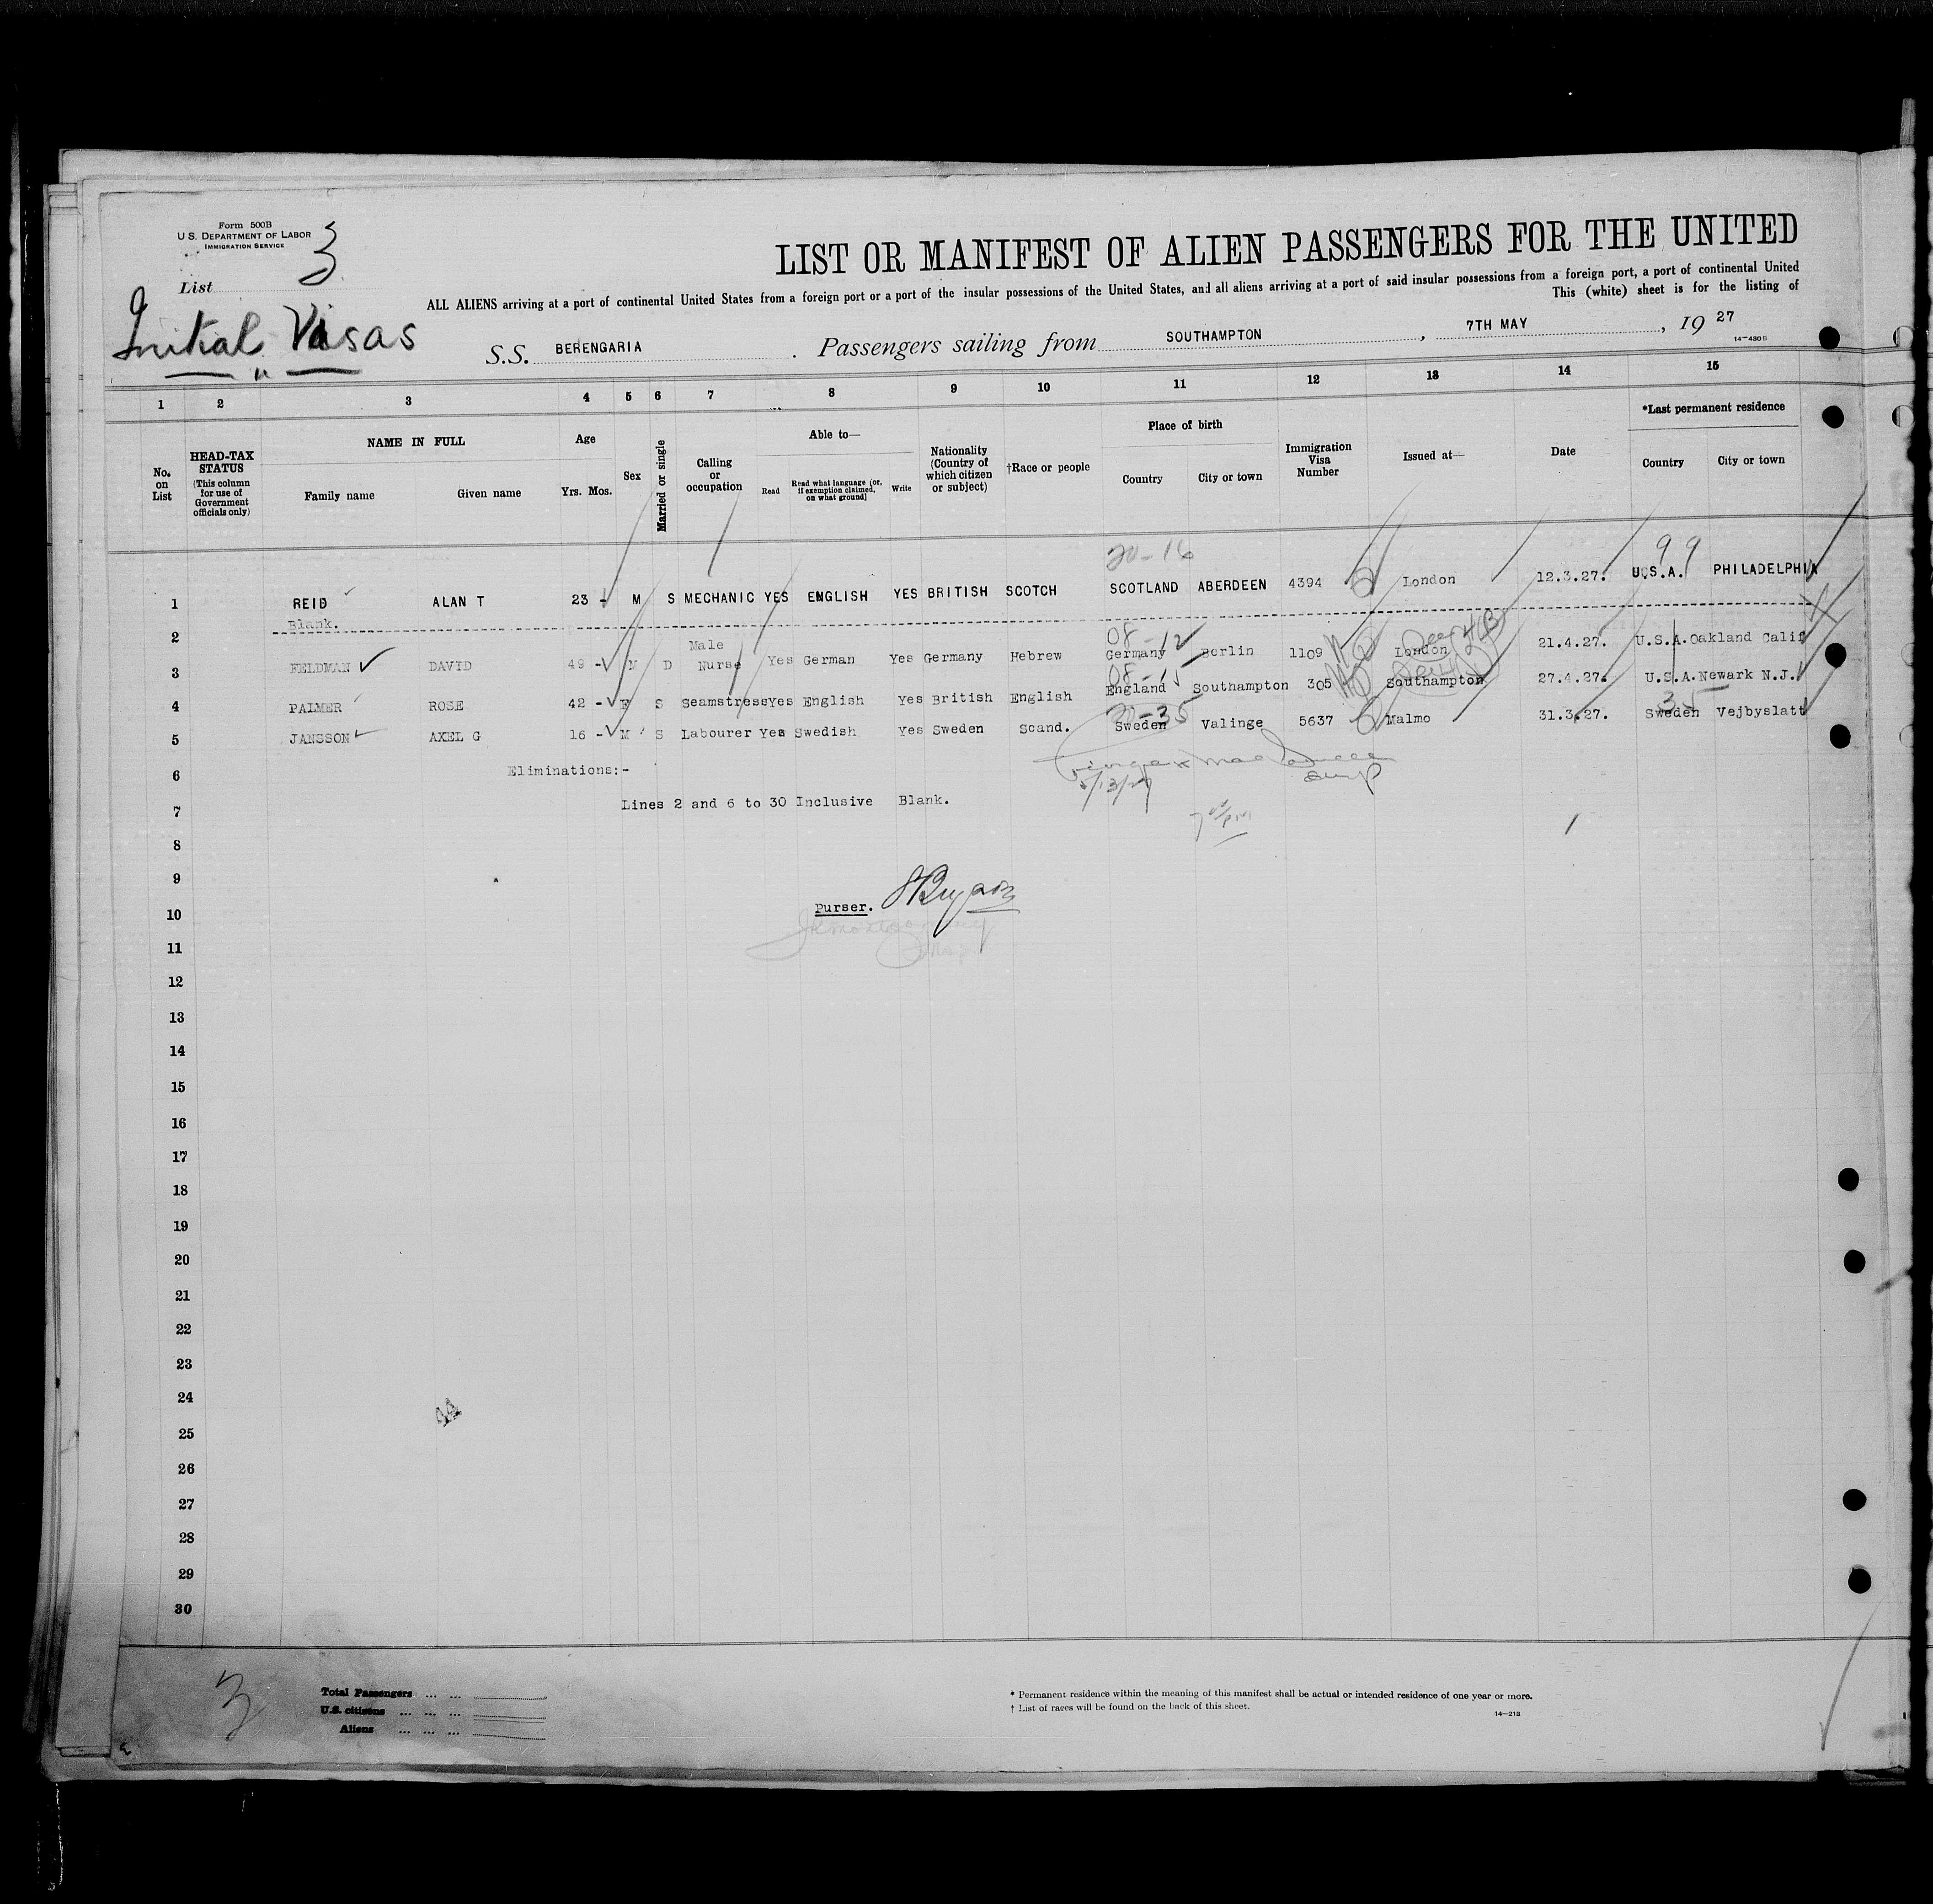 Form 500B
U.S. DEPARTMENT OF LABOR
IMMIGRATION SERVICE
3
List
Initial Visas
LIST OR MANIFEST OF ALIEN PASSENGERS FOR THE UNITED
ALL ALIENS arriving at a port of continental United States from a foreign port or a port of the insular possessions of the United States, and all aliens arriving at a port of said insular possessions from a foreign port, a port of continental United
This (white) sheet is for the listing of
S.S. BERENGARIA . Passengers sailing from SOUTHAMPTON , 7TH MAY , 19 27
1 2 3 4 5 6 7 8 9 10 11 12 13 14 15
No. on List
HEAD-TAX STATUS (This column for use of Government officials only)
NAME IN FULL
Family name Given name
Age
Yrs. Mos.
Sex
Married or single
Calling or occupation
Able to—
Read
Read what language [or, if exemption claimed, on what ground]
Write
Nationality (Country of which citizen or subject)
†Race or people
Place of birth
Country City or town
Immigration Visa Number
Issued at—
Date
*Last permanent residence
Country City or town
20-16 99
1 REID ALAN T 23 - M S MECHANIC YES ENGLISH YES BRITISH SCOTCH SCOTLAND ABERDEEN 4394 London 12.3.27. U.S.A. PHILADELPHIA
2 Blank.
08-12
3 FELDMAN DAVID 49 - M D Male Nurse Yes German Yes Germany Hebrew Germany Berlin 1109 London 21.4.27. U.S.A. Oakland Calif
08-15
4 PALMER ROSE 42 - F S Seamstress Yes English Yes British English England Southampton 305 Southampton 27.4.27. U.S.A. Newark N.J.
20-35 35
5 JANSSON AXEL G 16 - M S Labourer Yes Swedish Yes Sweden Scand. Sweden Valinge 5637 Malmo 31.3.27. Sweden Vejbyslatt
6 Eliminations:-
7 Lines 2 and 6 to 30 Inclusive Blank.
5/13/27
8
9
10 Purser.
11
12
13
14
15
16
17
18
19
20
21
22
23
24
25
26
27
28
29
30
3
Total Passengers ... ...
U.S. citizens ... ... ...
Aliens ... ... ...
* Permanent residence within the meaning of this manifest shall be actual or intended residence of one year or more.
† List of races will be found on the back of this sheet.
14—218